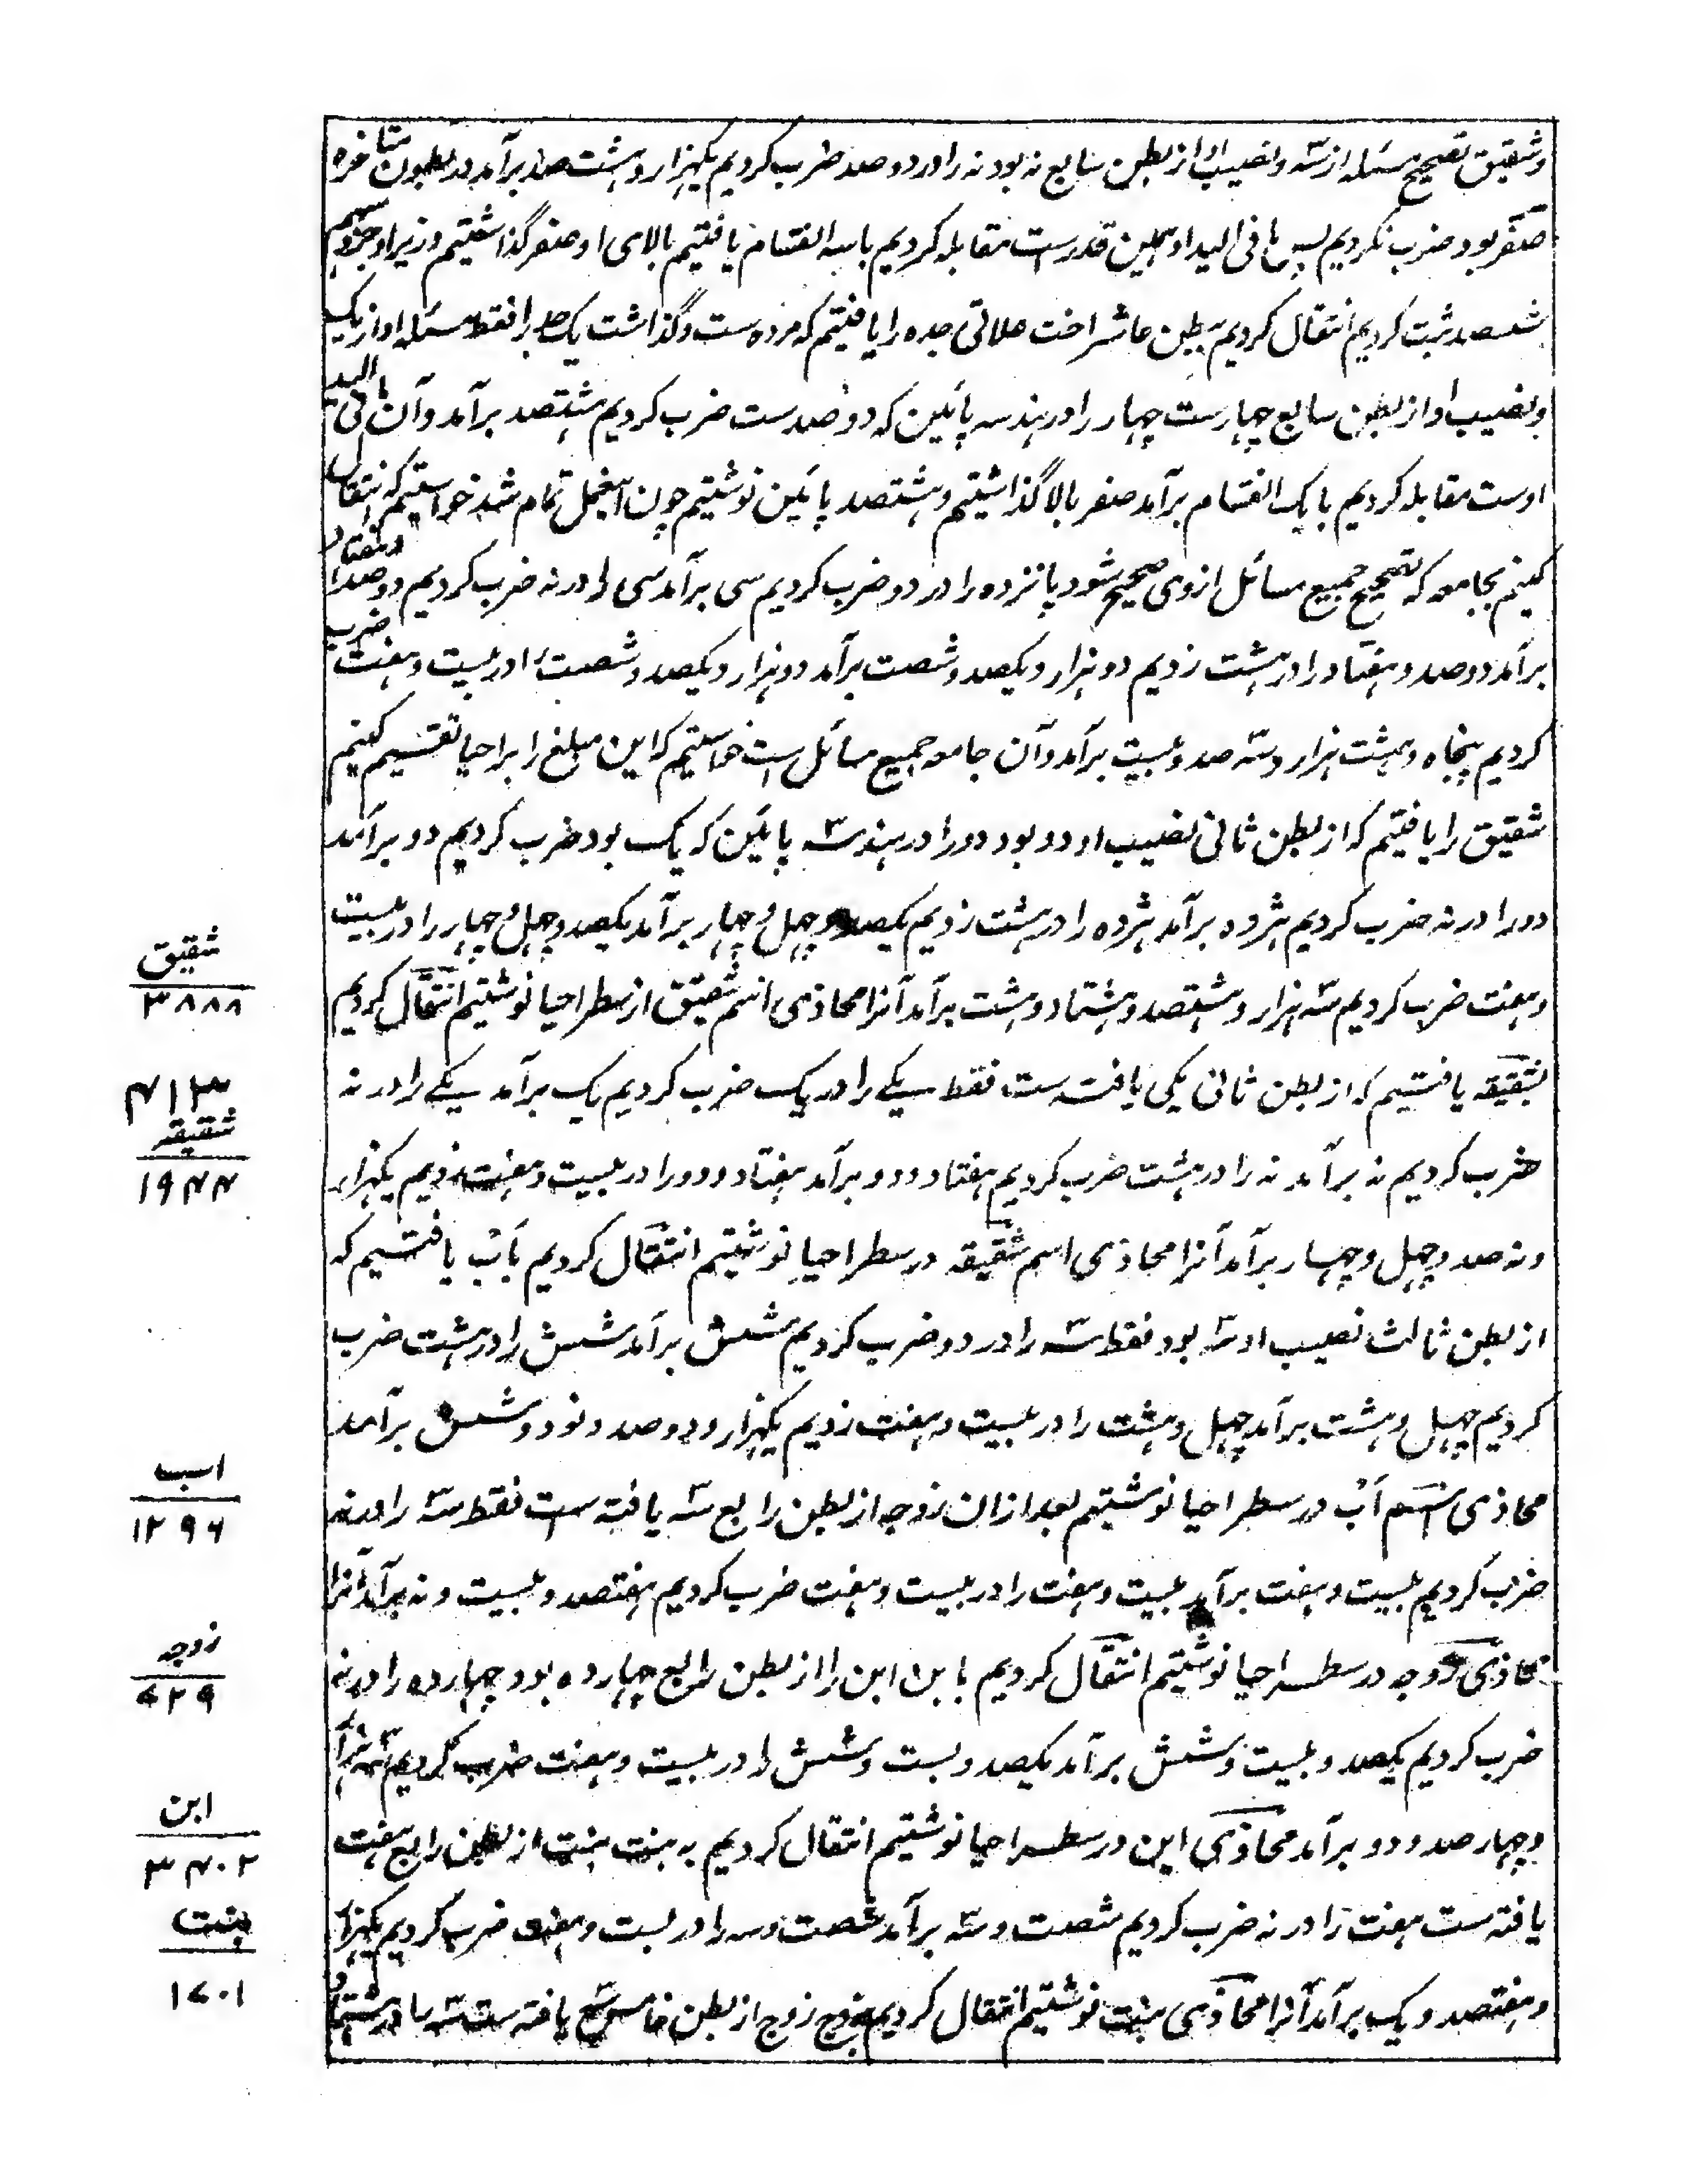 وشقیق تصحیح مسئله از سه ونصیب او از بطن سابع نه بود نه را در دو صد ضرب کردیم یکهزار وهشت صد برآمد در بطون متاخره
صفر بود ضرب نکردیم پس ما فی الید او همین قدرست مقابله کردیم با سه انقسام یافتیم بالای او صفر گذاشتیم وزیر او جزو سهم
ششصد ثبت کردیم انتقال کردیم ببطن عاشر اخت علاتی جده را یافتیم که مرده ست وگذاشت یک را فقط مسئله او از یک
ونصیب او از بطن سابع چهارست چهار را در هندسه پائین که دو صدست ضرب کردیم هشتصد برآمد وآن ما فی الید
اوست مقابله کردیم با یک انقسام برآمد صفر بالا گذاشتیم وهشتصد پائین نوشتیم چون اینعمل تمام شد خواستیم که انتقال
کنیم بجامعه که تصحیح جمیع مسائل ازوی صحیح شود پانزده را در دو ضرب کردیم سی برآمد سی را در نه ضرب کردیم دو صد وهفتاد
برآمد دوصد وهفتاد را در هشت زدیم دو هزار ویکصد وشصت برآمد دو هزار ویکصد وشصت را در بیست وهفت ضرب
کردیم پنجاه وهشت هزار وسه صد وبیست برآمد وآن جامعه جمیع مسائل ست خواستیم که این مبلغ را بر احیا تقسیم کنیم
شقیق را یافتیم که از بطن ثانی نصیب او دو بود دو را در هندسه پائین که یک بود ضرب کردیم دو برآمد
دو را در نه ضرب کردیم هژده برآمد هژده را در هشت زدیم یکصد وچهل وچهار برآمد یکصد وچهل وچهار را در بیست
وهفت ضرب کردیم سه هزار وهشتصد وهشتاد وهشت برآمد آنرا محاذی اسم شقیق از سطر احیا نوشتیم انتقال کردیم
شقیق
۳۸۸۸
بشقیقه یافتیم که از بطن ثانی یکی یافته ست فقط یکے را در یک ضرب کردیم یک برآمد یکے را در نه
۴۱۳
شقیقه
۱۹۴۴
ضرب کردیم نه برآمد نه را در هشت ضرب کردیم هفتاد ودو برآمد هفتاد ودو را در بیست وهفت زدیم یکهزار
ونه صد وچهل وچهار برآمد آنرا محاذی اسم شقیقه در سطر احیا نوشتیم انتقال کردیم بَابْ یافتیم که
از بطن ثالث نصیب او سه بود فقط سه را در دو ضرب کردیم شش برآمد شش را در هشت ضرب
کردیم چهل وهشت برآمد چهل وهشت را در بیست وهفت زدیم یکهزار ودو صد ونود وشش برآمد
اب
۱۲۹۶
محاذی اسم اَبْ در سطر احیا نوشتیم بعد ازان زوجه از بطن رابع سه یافته ست فقط سه را در نه
ضرب کردیم بیست وهفت برآمد بیست وهفت را در بیست وهفت ضرب کردیم هفتصد وبیست ونه برآمد آنرا
زوجه
۷۲۹
محاذی زوجه در سطر احیا نوشتیم انتقال کردیم بابن ابن را از بطن رابع چهارده بود چهارده را در نه
ضرب کردیم یکصد وبیست وشش برآمد یکصد وبست وشش را در بیست وهفت ضرب کردیم سه هزار
ابن
۳۴۰۲
وچهار صد ودو برآمد محاذی ابن در سطر احیا نوشتیم انتقال کردیم به بنت بنت از بطن رابع هفت
یافته ست هفت را در نه ضرب کردیم شصت وسه برآمد شصت وسه را در بست وهفت ضرب کردیم یکهزار
بنت
۱۷۰۱
وهفتصد ویک برآمد آنرا محاذی بنت نوشتیم انتقال کردیم بزوج زوج از بطن خامس سه یافته ست سه را در هشتاد